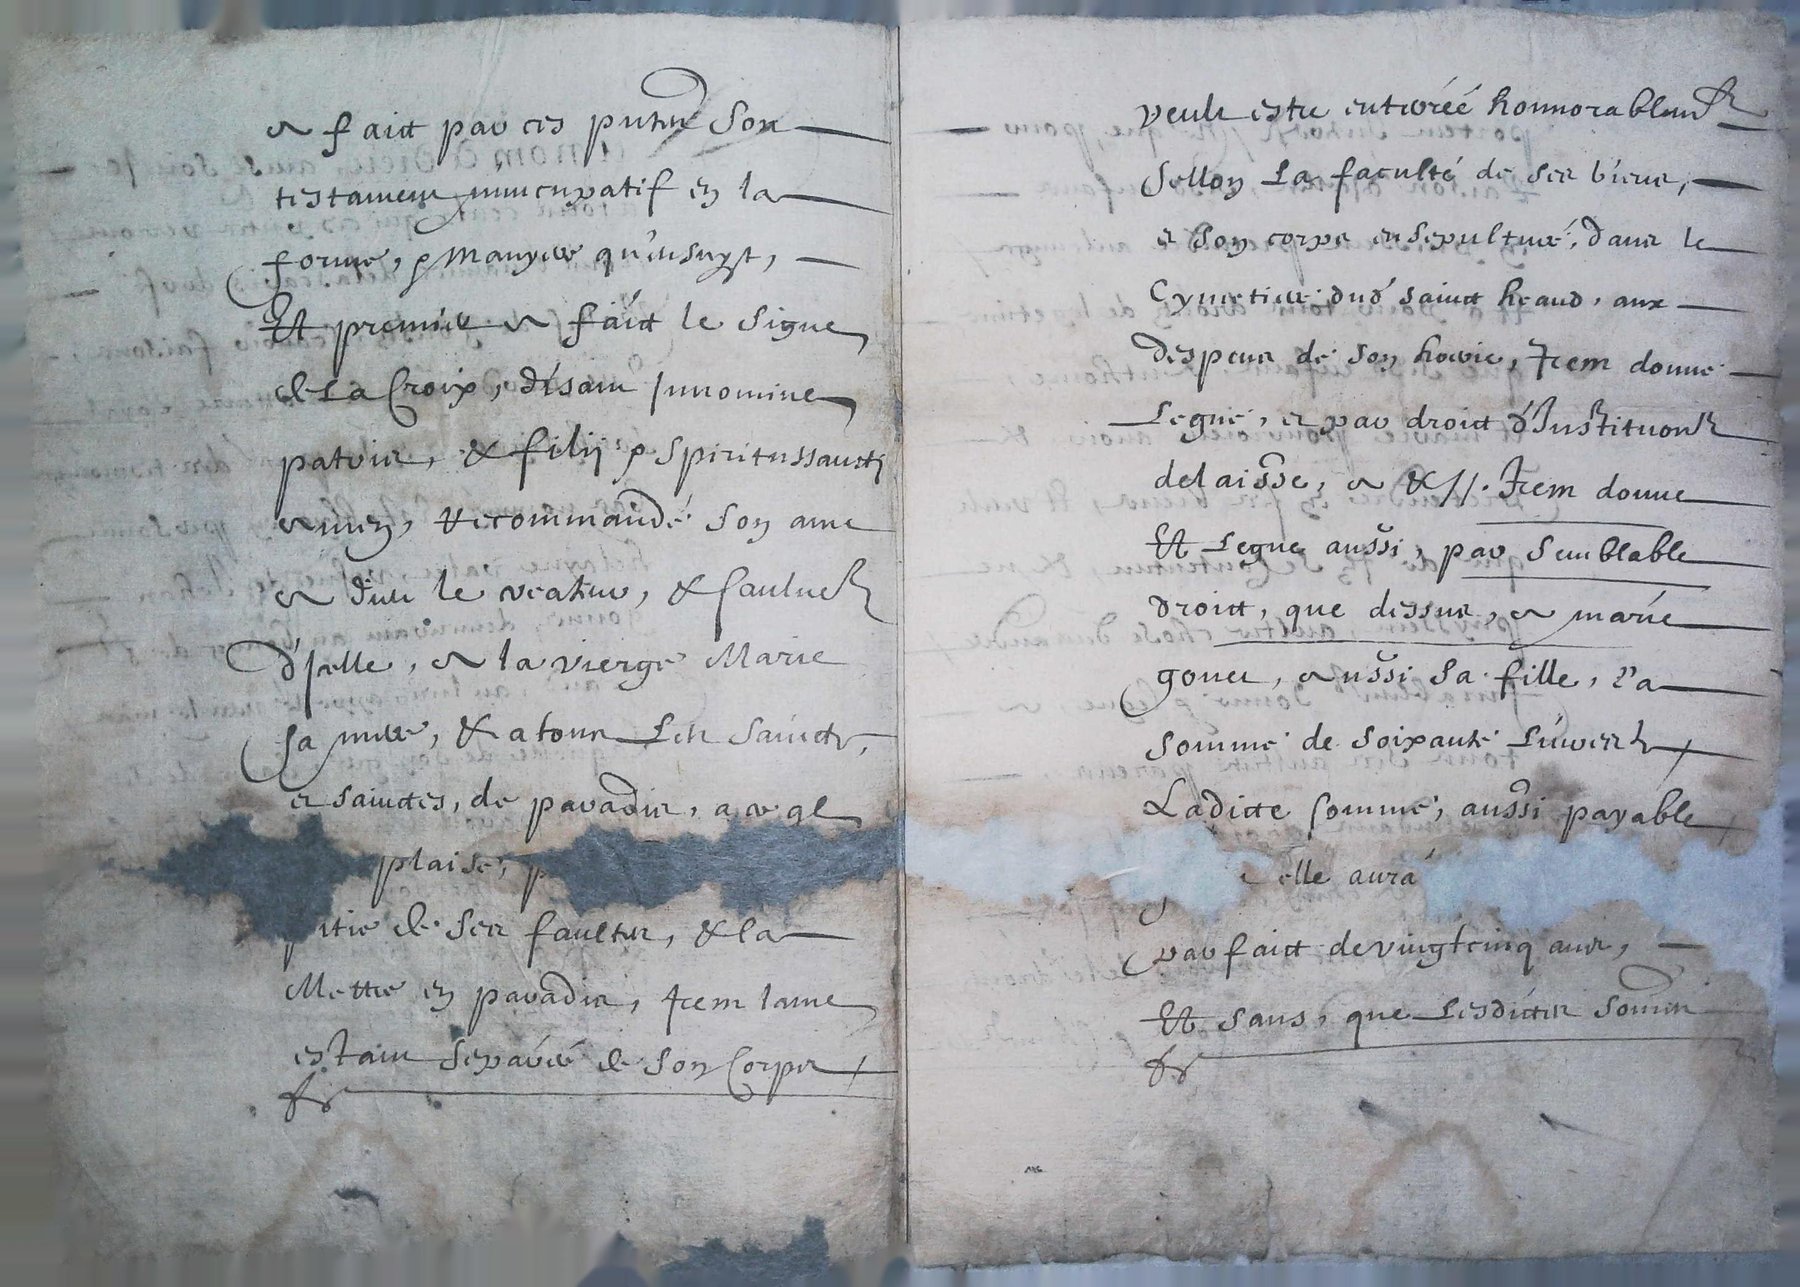 a faict par ces pntes son
testament nuncupatif en la
forme, & manyere qu'ensuyt,
Et premier a faict le signe
de La Croix, disant Innomine
patris, & filij & spiritussancti
amen, recommandé son ame
a dieu le createur, & saulueur
d'Icelle, a la vierge Marie
sa mere, & a tous Les sainctz,
et sainctes, de paradis, a ce ql
plaise,
pitié de ses faultes, & la
Mettre en paradis, Item lame
estant separée de son Corps
veult estre enterréé honnorablemt
sellon La faculté de ses biens,
et son corps ensepulturé, dans le
Cymetiere dud saint heand, aux
despens de son hoirie, Item donne
Legue, et par droict d'Institution
delaisse, a &//. Item donne
Et Legue aussi, par semblable
droict, que dessus, a marie
gonet, aussi sa fille, la
somme de soixante Liures
Ladicte somme, aussi payable
elle aura
parfaict de vingtcinq ans,
Et sans, que Lesdictes sommes